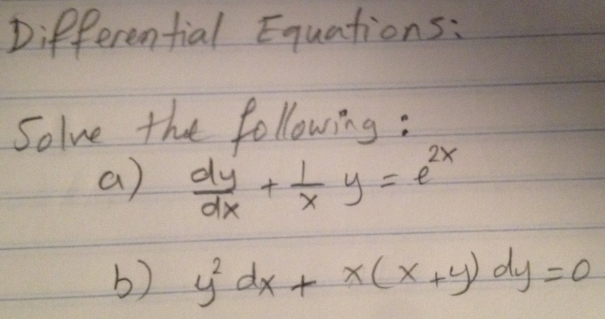 Differential Equations:
Solve the following:
a) dy/dx + 1/x y = e^2x
b) y² dx + x(x+y) dy = 0